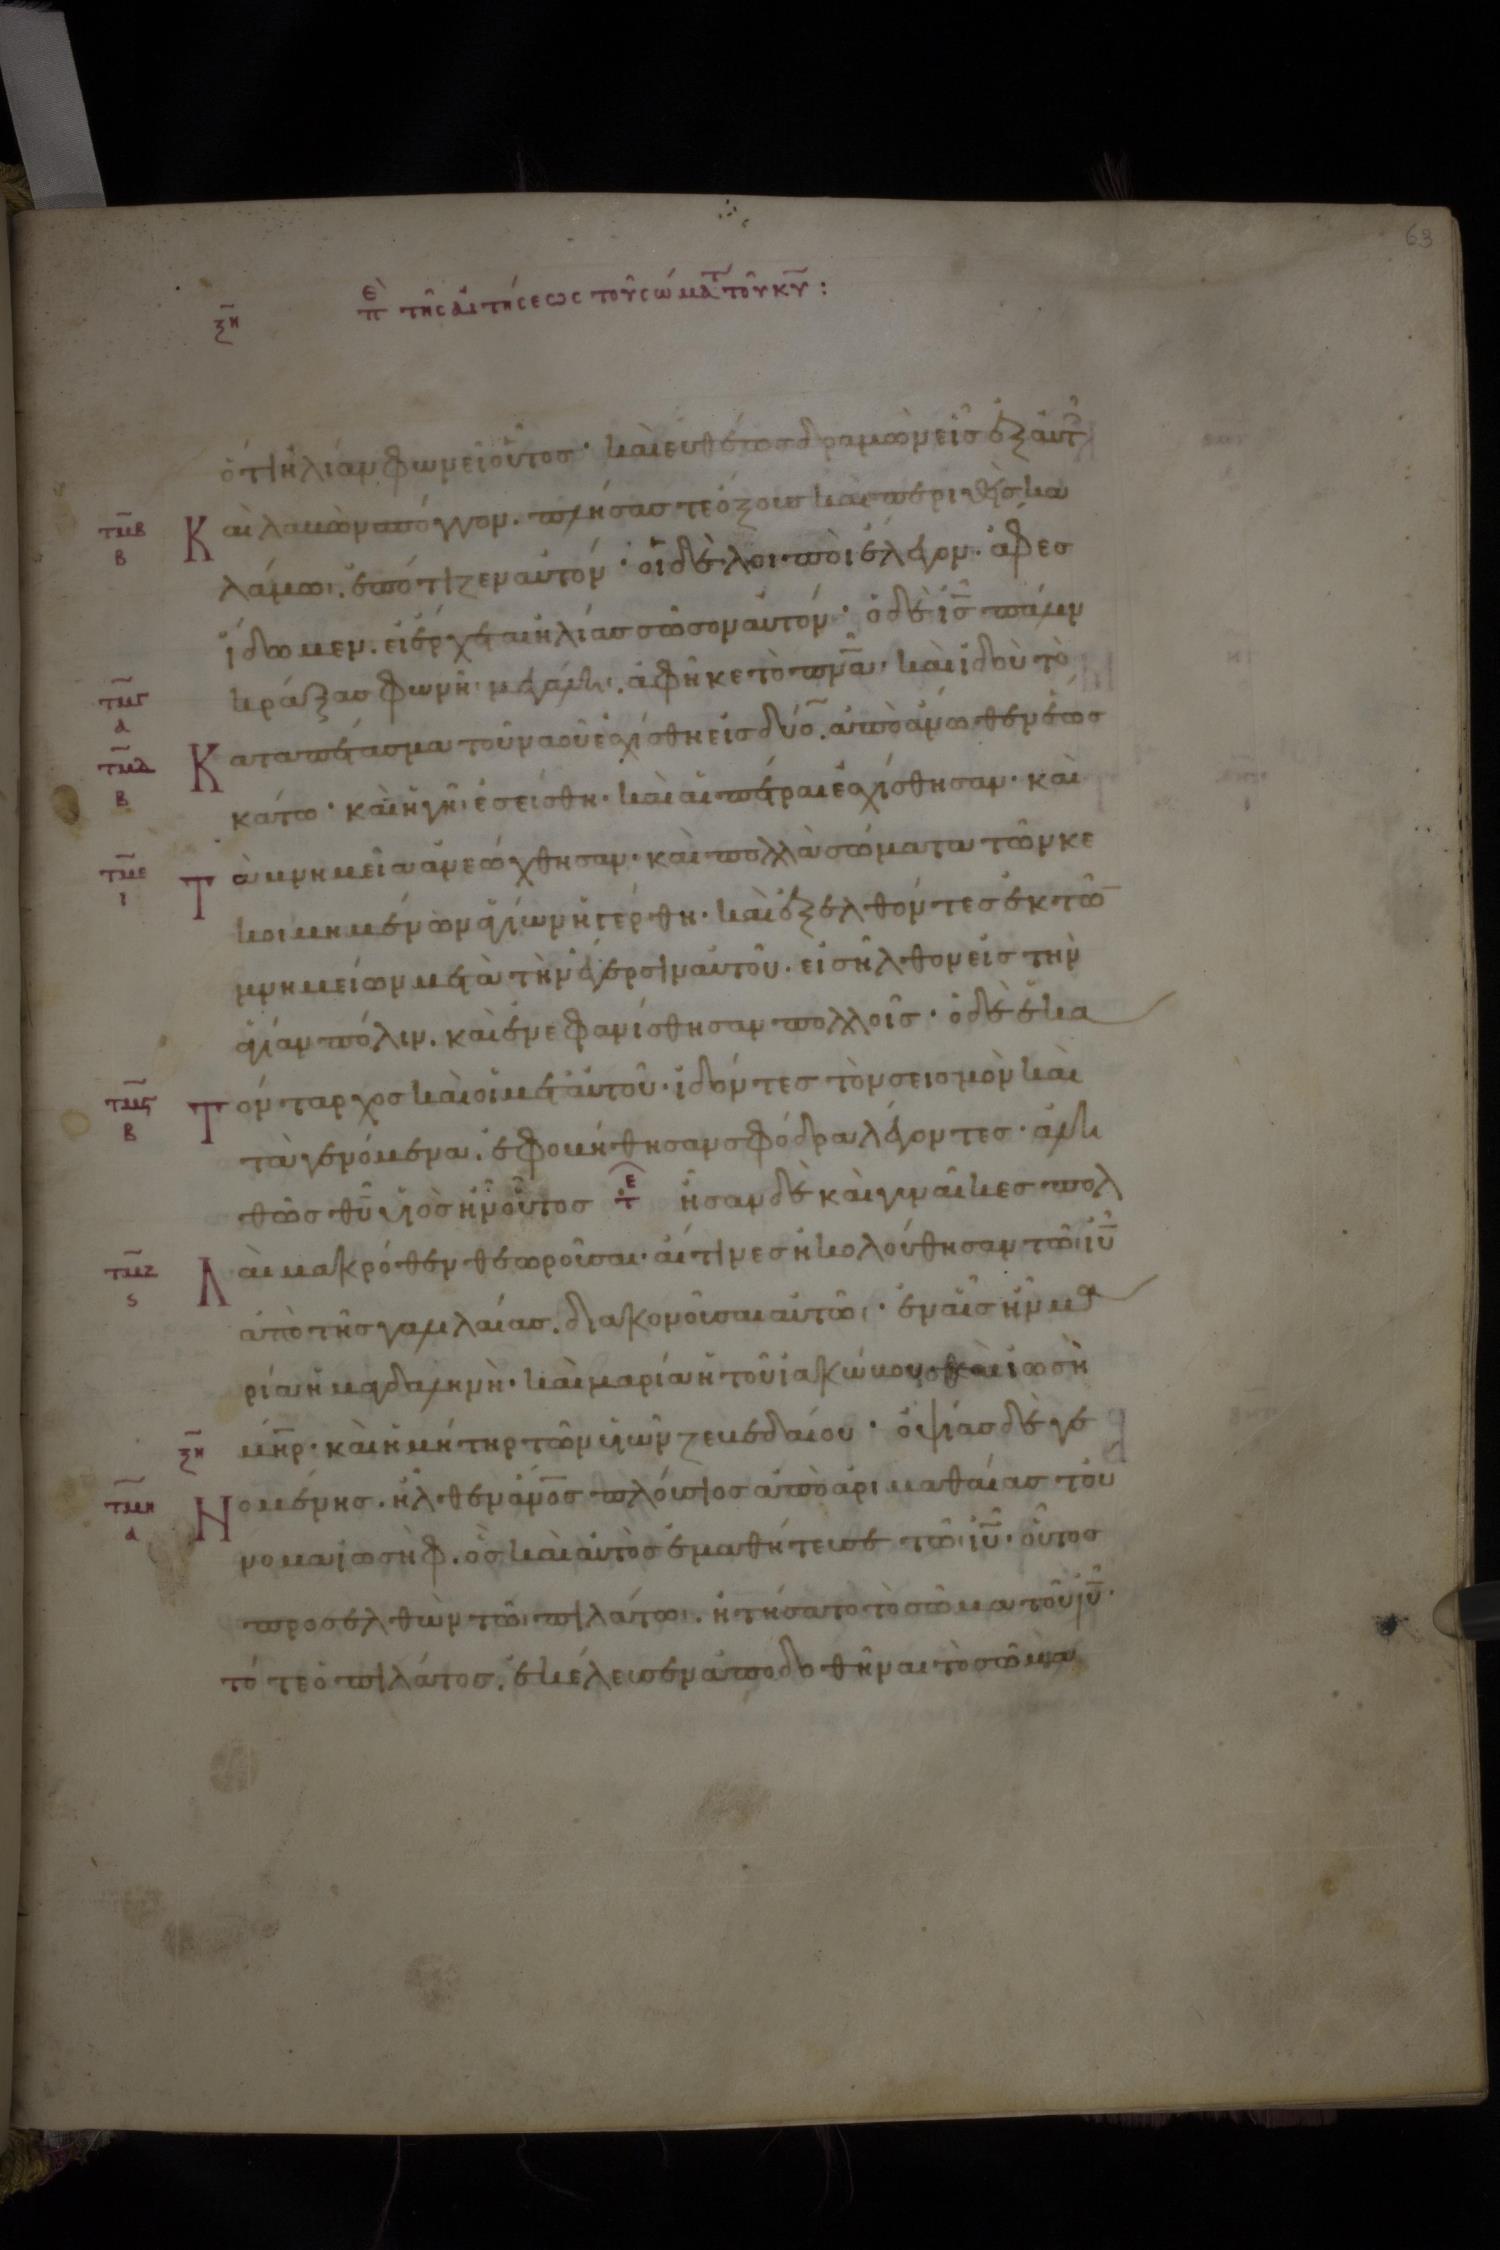 63
ξη
ἐπ τῆς αἰτήσεως τοῦ σώματ τοῦ κυ:
ὅτι ἠλίαν φωνεῖ οὗτος· καὶ εὐθέως δραμὼν εἷς ἐξ αὐτ
τμβ β
Καὶ λαβὼν σπόγγον. πλήσας τε ὄξους καὶ περιθεὶς κα
λάμω. ἐπότιζεν αὐτόν· οἱ δὲ λοιποὶ ἔλεγον. ἄφες
ἴδωμεν. εἰ ἔρχεται ἠλίας σώσον αὐτόν· ὁ δὲ ις πάλιν
κράξας φωνῆ μεγάλη. ἀφῆκε τὸ πνα· καὶ ἰδοὺ τὸ
τμγ α
τμδ β
Καταπέτασμα τοῦ ναοῦ ἐσχίσθη εἰς δύο. ἀπὸ ἄνωθεν ἕως
κάτω· καὶ ἡ γῆ ἐσείσθη· καὶ αἱ πέτραι ἐσχίσθησαν· καὶ
τμε ι
Τὰ μνημεῖα ἀνεώχθησαν· καὶ πολλὰ σώματα τῶν κε
κοιμημένων ἁγίων ἠγέρθη· καὶ ἐξελθόντες ἐκ τῶ
μνημείων μετὰ τὴν ἔγερσιν αὐτοῦ. εἰσῆλθον εἰς τὴν
ἁγίαν πόλιν. καὶ ἐνεφανίσθησαν πολλοῖς· ὁ δὲ ἑκα
τμς β
Τόνταρχος καὶ οἱ μετ' αὐτοῦ· ἰδόντες τὸν σεισμὸν καὶ
τὰ γενόμενα. ἐφοβήθησαν σφόδρα λέγοντες· ἀλη
θῶς θυ υἱὸς ἦν οὗτος τε ἦσαν δὲ καὶ γυναῖκες πολ
τμζ ς
Λαὶ μακρόθεν θεωροῦσαι· αἵτινες ἠκολούθησαν τῶ ιυ
ἀπὸ τῆς γαλιλαίας. διακονοῦσαι αὐτῶ· ἐν αἷς ἦν μα
ρία ἡ μαγδαληνὴ· καὶ μαρία ἡ τοῦ ἰακώβου καὶ ἰωσὴ
ξη
μηρ· καὶ ἡ μήτηρ τῶν υἱῶν ζεβεδαίου· ὀψίας δὲ γε
τμη α
Νομένης. ἦλθεν ἄνος πλούσιος ἀπὸ ἀριμαθαίας τοὔ
νομα ἰωσὴφ. ὃς καὶ αὐτὸς ἐμαθήτευσε τῶ ιυ· οὗτος
προσελθὼν τῶ πιλάτω. ἠτήσατο τὸ σῶμα τοῦ ιυ·
τότε ὁ πιλάτος. ἐκέλευσεν ἀποδοθῆναι τὸ σῶμα